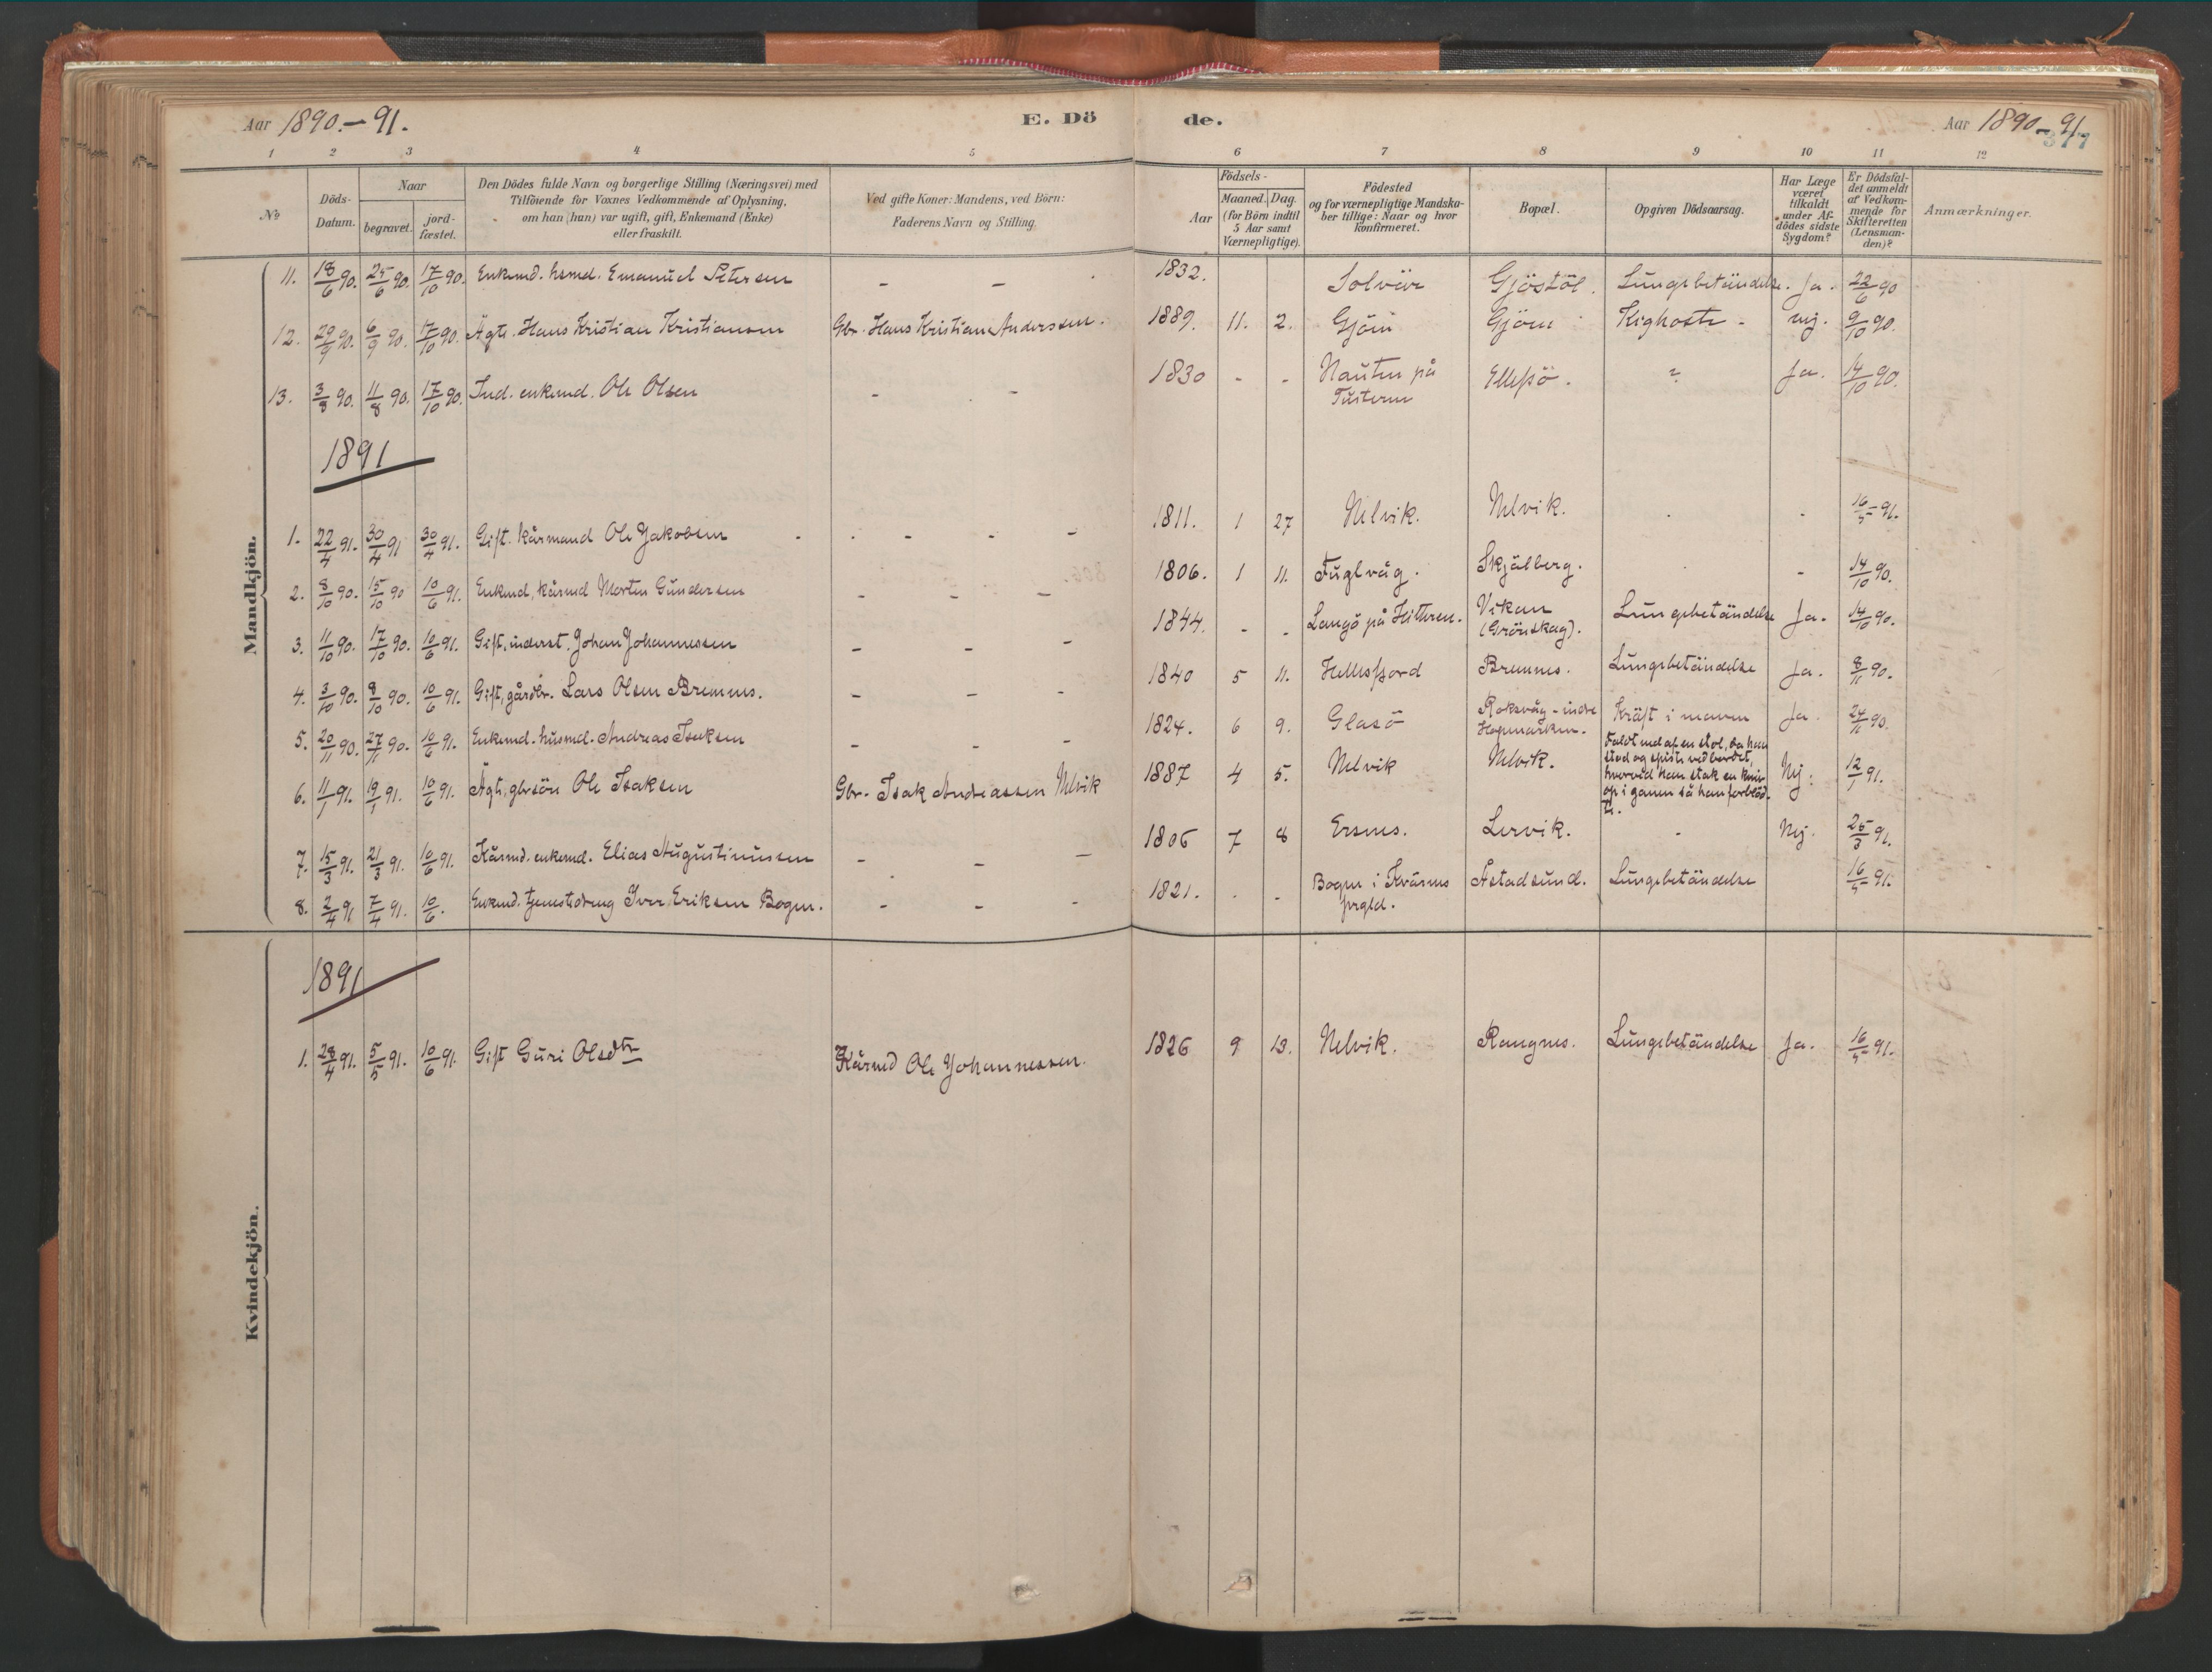 Aar 1890.-91.
E. Dö de.
Aar 1890-91.
377
1 2 3 4 5 6 7 8 9 10 11 12
No
Döds-Datum.
Naar
begravet.
jord-fæstet.
Den Dödes fulde Navn og borgerlige Stilling (Næringsvei) med
Tilföiende for Voxnes Vedkommende af Oplysning,
om han (hun) var ugift, gift, Enkemand (Enke)
eller fraskilt.
Ved gifte Koner: Mandens, ved Börn:
Faderens Navn og Stilling.
Födsels-
Aar
Maaned. Dag.
(for Börn indtil
5 Aar samt
Værnepligtige).
Födested
og for værnepligtige Mandska-
ber tillige: Naar og hvor
konfirmeret.
Bopæl.
Opgiven Dödsaarsag.
Har Læge
været
tilkaldt
under Af-
dödes sidste
Sygdom?
Er Dödsfal-
det anmeldt
af Vedkom-
mende for
Skifteretten
(Lensman-
den)?
Anmærkninger.
Mandkjön.
11. 18/6 90. 25/6 90. 17/10 90. Enkemd. hsmd. Emanuel Petersen - - 1832. Solvær Gjöstöl. Lungebetændelse. Ja. 22/6 90
12. 29/9 90. 6/9 90. 17/10 90. Ægte. Hans Kristian Kristiansen Gbr. Hans Kristian Anderssen. 1889. 11. 2. Gjöen Gjöen Kighoste - nej. 9/10 90.
13. 3/8 90. 11/8 90. 17/10 90. Ind. enkemd. Ole Olsen - - 1830 - - Nauten på Tusteren Ellefsö. ? Ja. 14/10 90.
1891
1. 22/4 91. 30/4 91 30/4 91. Gift. kårmand Ole Jakobsen - - - - 1811. 1 27 Nelvik. Nelvik. . . 16/5 91.
2. 8/10 90. 15/10 90 10/6 91. Enkemd, kårmd Morten Gundersen - - - 1806. 1 11. Fuglvåg. Skjålberg. . - 14/10 90.
3. 11/10 90. 17/10 90. 10/6 91. Gift, inderst. Johan Johannessen - - - 1844. - - Langö på Hitteren. Vikan (Grönskag). Lungebetændelse Ja. 14/10 90.
4. 3/10 90. 8/10 90. 10/6 91. Gift, gårdbr. Lars Olsen Bremnes. - - - 1840 5 11. Hellesfjord Bremnes. Lungebetændelse Ja. 8/11 90.
5. 20/11 90. 27/11 90. 10/6 91. Enkemd. husmd. Andreas Isaksen - - - 1824. 6 9. Glasö Roksvåg - indre Hopmarken. Kræft i maven Ja. 24/11 90.
6. 11/1 91. 19/1 91. 10/6 91. Ægte, gbrsön Ole Isaksen Gbr. Isak Andreassen Nelvik 1887 4 5. Nelvik Nelvik. Faldt ned af en stol, da han
stod og spiste ved bordet,
hvorved han stak en kniv
op i ganen så han forblöd-
te. Nej. 12/1 91.
7. 15/3 91. 21/3 91. 10/6 91. Kårmd. enkemd. Elias Augustinussen - - - 1806 7 8 Ersnes. Lervik. - Nej. 25/3 91.
8. 2/4 91 7/4 91. 10/6. Enkemd. tjenestedreng Iver Eriksen Bogen. - - - 1821. . - Bogen i Kværnes prgld. Åstadsund. Lungebetændelse 16/5 91.
Kvindekjön.
1891
1. 28/4 91. 5/5 91. 10/6 91. Gift Guri Olsdtr Kårmd Ole Johannessen. 1826 9 13. Nelvik. Rangnes. Lungebetændelse Ja. 16/5 91.